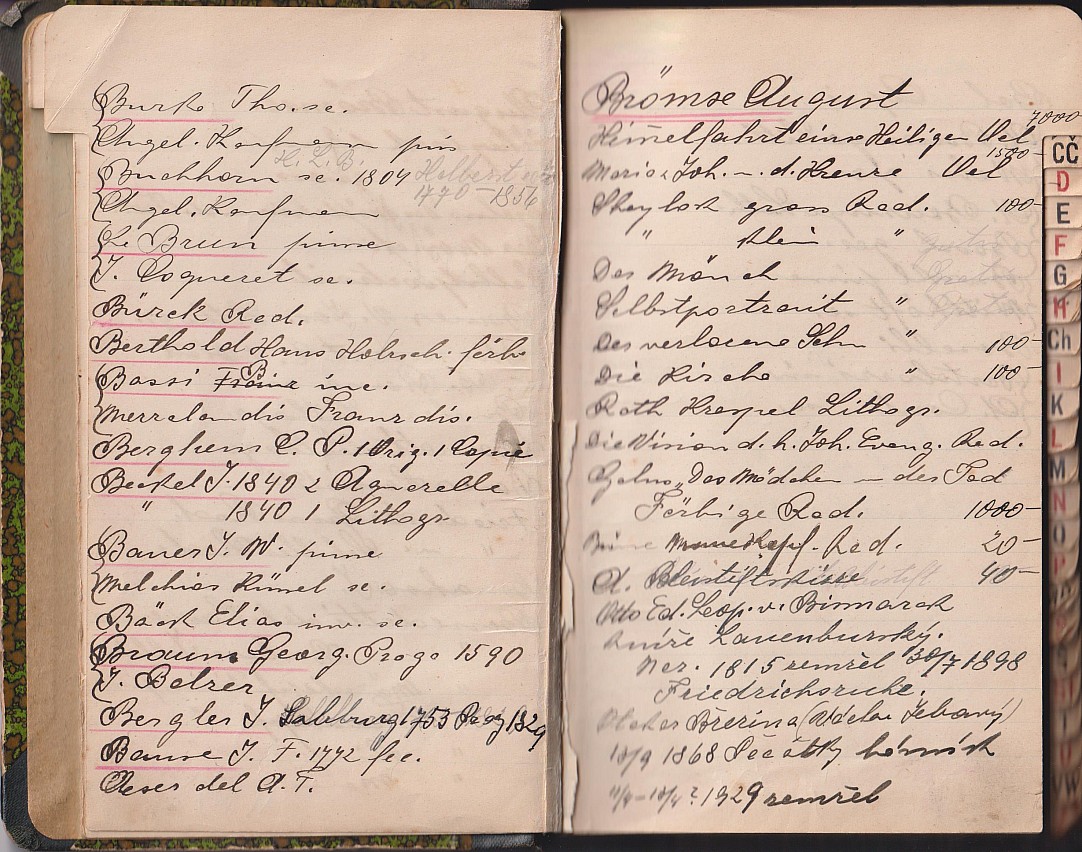 Burke Tho. sc.
Angel. Kaufmann pin
H. L. B.
Buchhorn sc. 1804 Halberst
1770–1856
Angel. Kaufmann
Le Brun pinx
J. Coqueret sc.
Bürck Rad.
Berthold Hans Holzsch. färb.
Bassi Franz B inc.
Merrelandis Franz dis.
Berghem C. P. 1 Orig. 1 Copie
Beckel J. 1840 2 Aquarelle
" 1840 1 Lithogr.
Bauer J. W. pinx
Melchior Küssel sc.
Bäck Elias inv. sc.
Braun Georg. Prag 1590
J. Balzer
Bergler J. Salzburg 1753 Prag 1829
Bause J. F. 1772 fec.
Oeser del A. F.
Brömse August
7000
Himelfahrt eines Heiligen Oel
1500–
Maria u. Joh. u. d. Kreuze Oel
Shaylock gross Rad. 100–
" klein "
Der Mönch
Selbstportrait "
Der verlorene Sohn " 100–
Die Kirche " 100–
Rath Krespel Lithogr.
Die Vision d. h. Joh. Evang. Rad.
Cyclus „Das Mädchen u. der Tod
Färbige Rad. 1000–
Kopf. Rad. 20–
A. Bleistiftskizze 40–
Otto Ed. Leop. v. Bismarck
kníže Lauenburský.
Nar. 1815 zemřel 30/7 1898
Friedrichsruhe.
Otakar Březina (Václav Jebavý)
13/9 1868 Počátky básník
1929 zemřel
CČ
D
E
F
G
H
Ch
I
K
L
M
N
O
P
VW